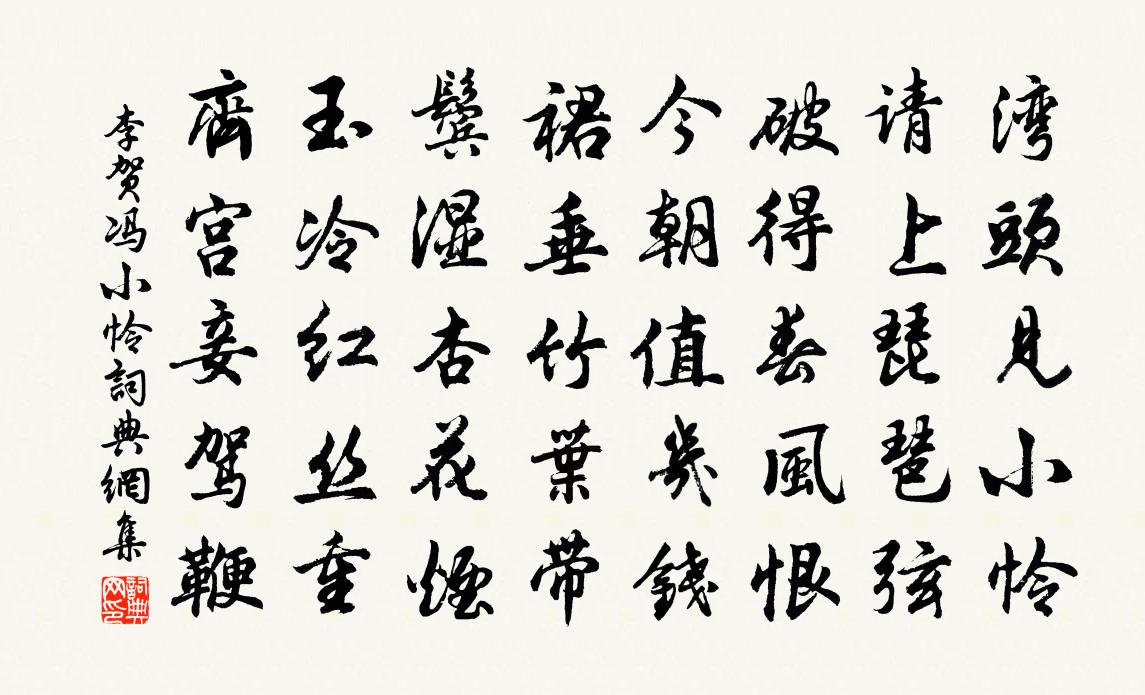 湾頭見小怜
请上琵琶弦
破得春風恨
今朝值幾錢
裙垂竹葉带
鬓湿杏花煙
玉冷红丝重
齊宫妾驾鞭
李贺冯小怜詞典網集
詞典网印